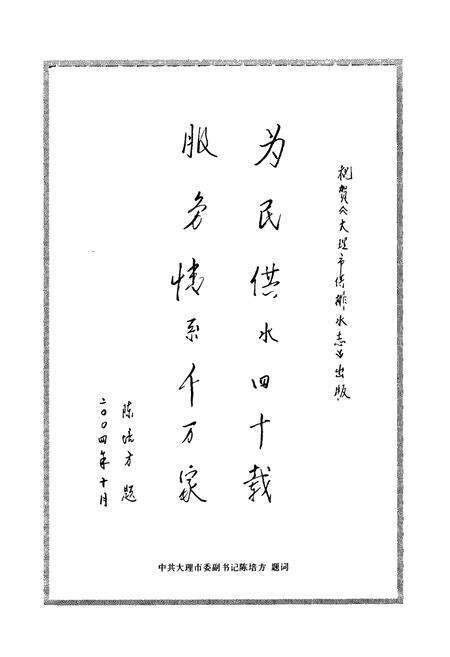 祝贺《大理市供排水志》出版
为民供水四十载
服务情系千万家
陈培方 题
二〇〇四年十月
中共大理市委副书记陈培方 题词